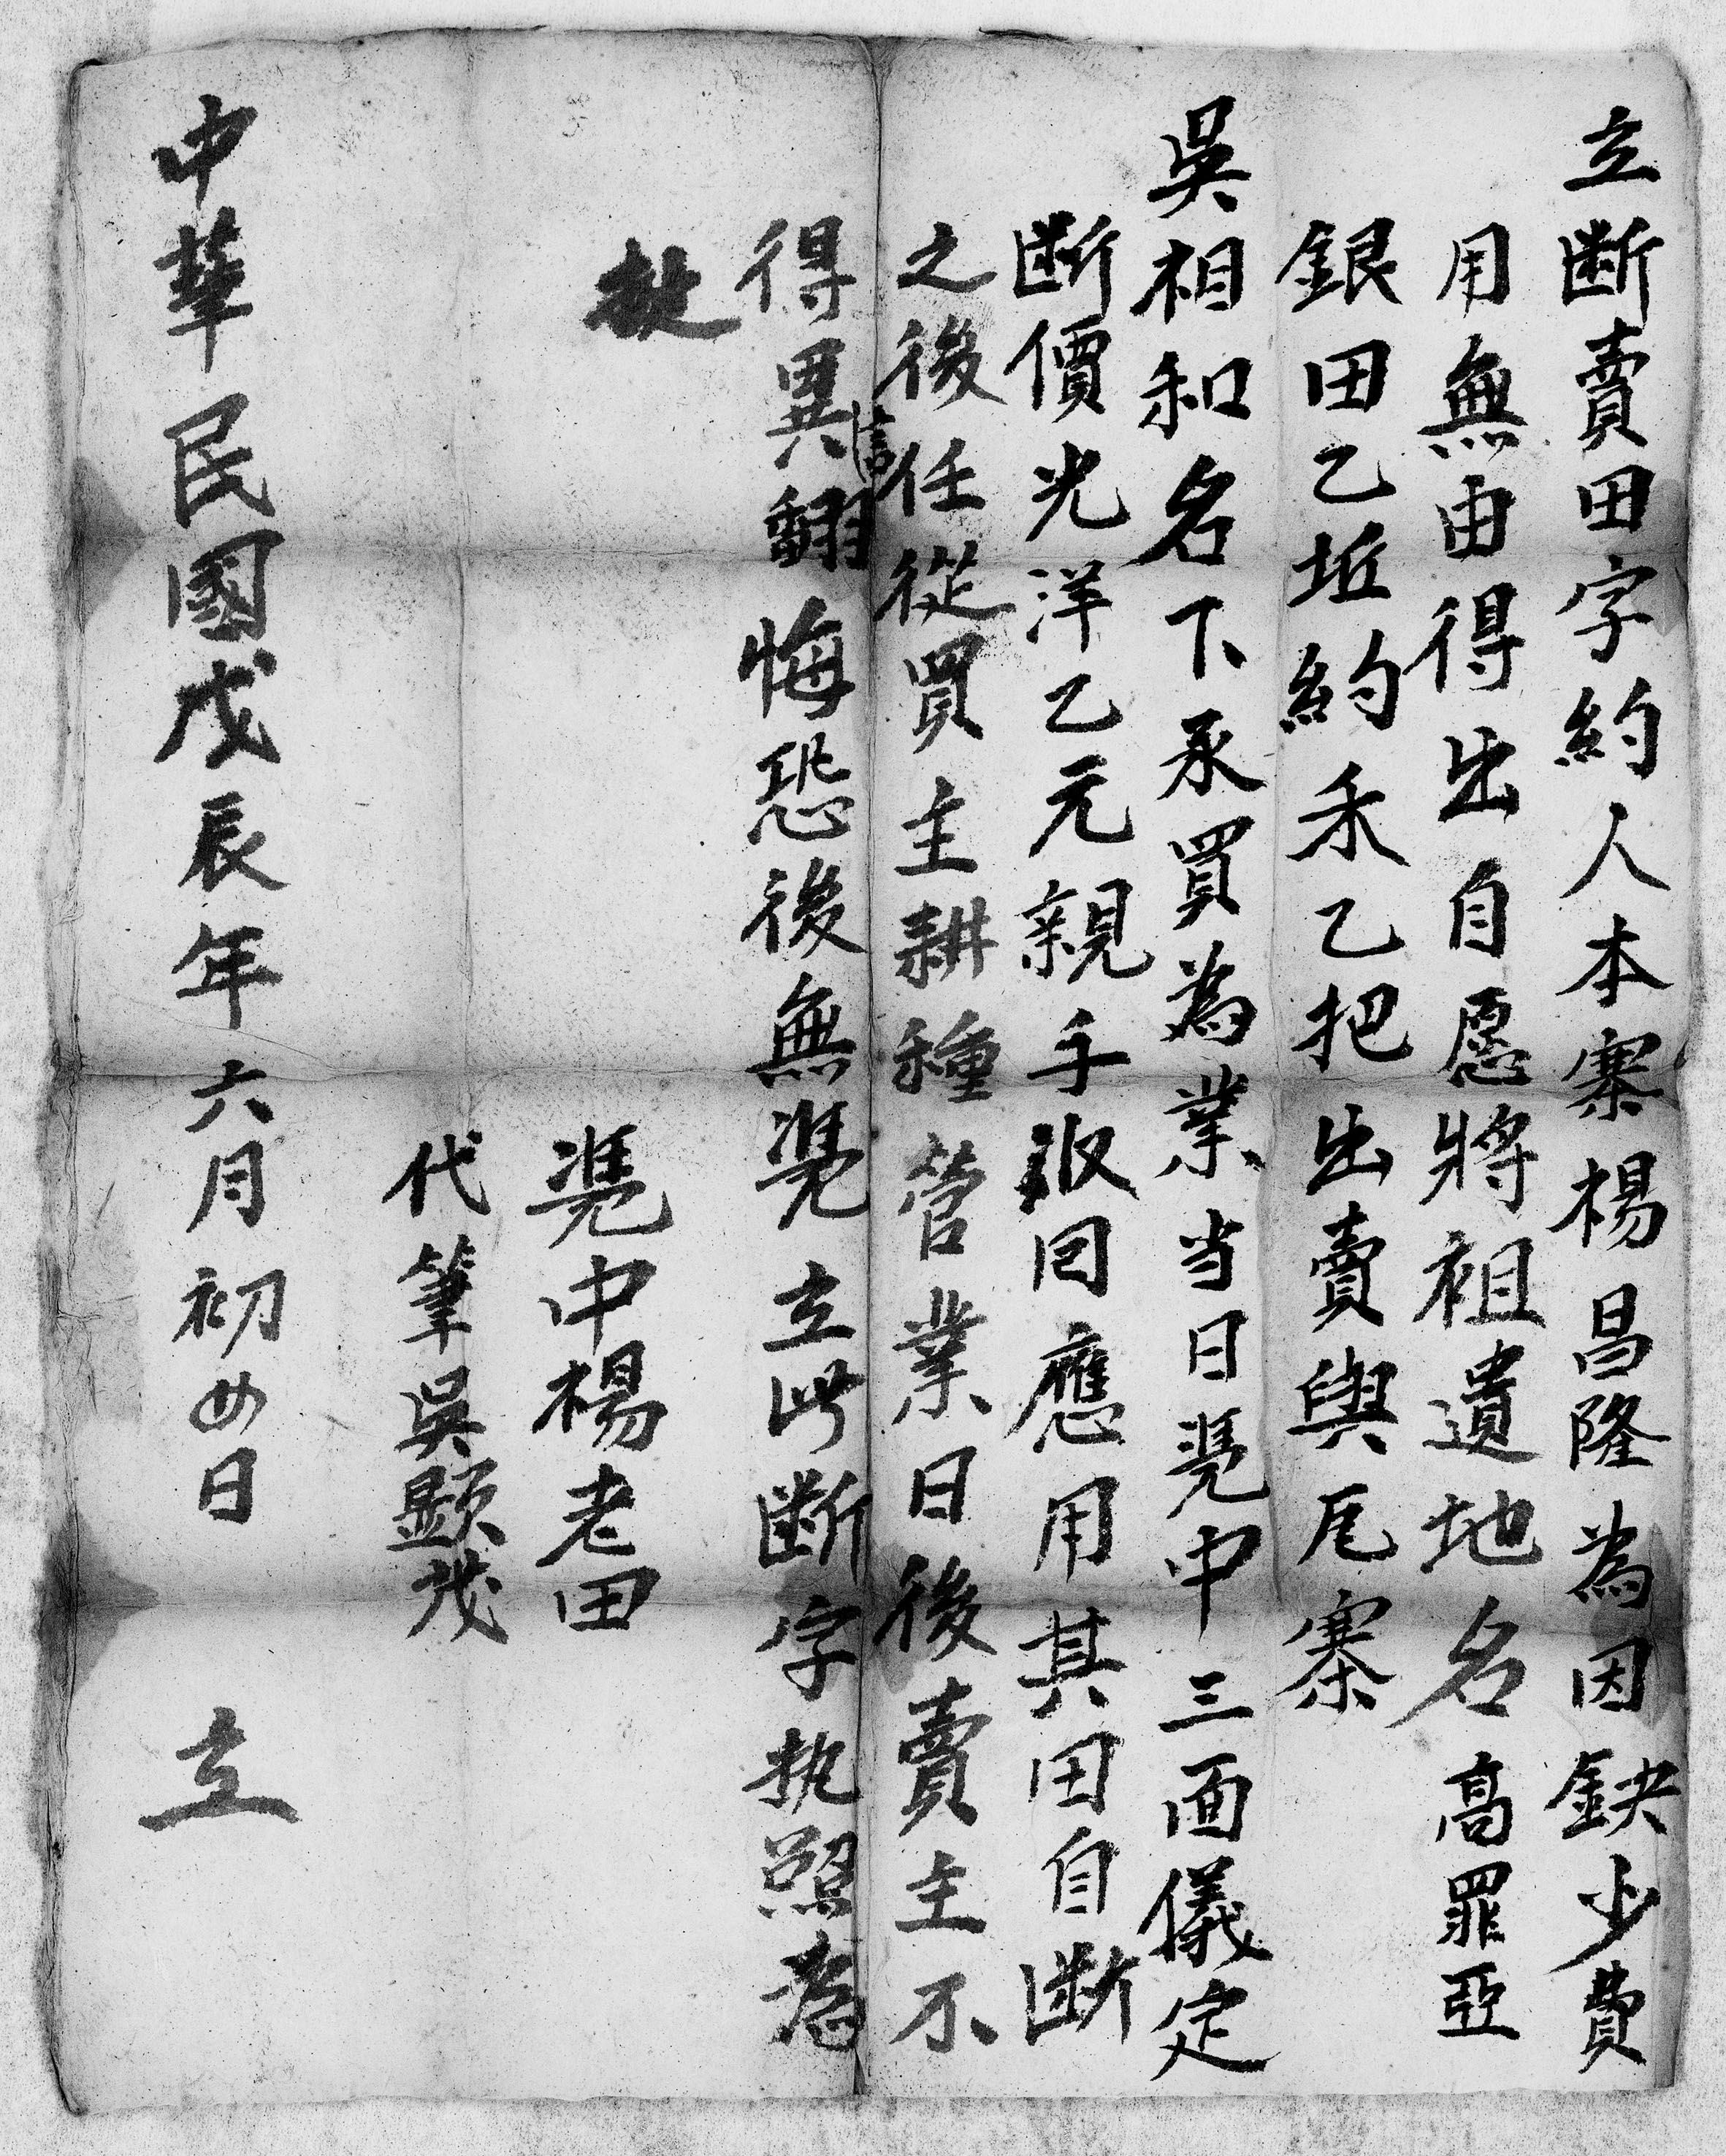 立断賣田字約人本寨楊昌隆為因缺少費
用無由得出自愿將祖遺地名高罪亞
銀田乙坵約禾乙把出賣與瓦寨
吳相和名下承買為業当日凴中三面儀定
断價光洋乙元親手收回應用其田自断
之後任從買主耕種管業日後賣主不
得異言翻悔恐後無凴立此断字执照為
拠
凴中楊老田
代筆吳顕茂
中華民國戊辰年六月初四日 立